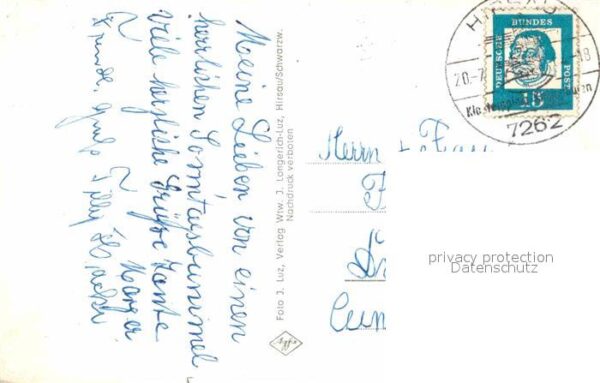 Meine Lieben von einen
herrlichen Sonntagsbummel
viele herzliche Grüße Tante
Marga
Freundl. Grüße Tilly
Foto J. Luz, Verlag Wtw. J. Longerich-Luz, Hirsau/Schwarzw.
Nachdruck verboten
Agfa
HIRSAU
20.-7.
-18
7262
DEUTSCHE
BUNDES
POST
15
Herrn + Frau
privacy protection
Datenschutz